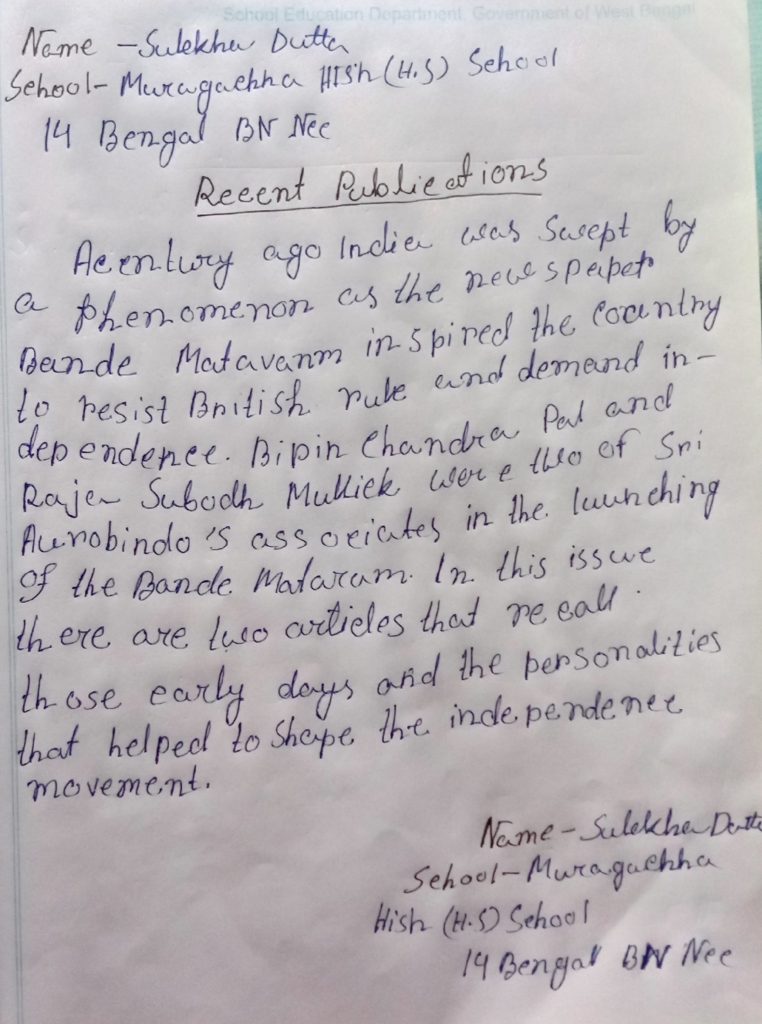 School Education Department, Government of West Bengal
Name - Sulekha Dutta
School - Muragachha Hish (H.S) School
14 Bengal BN Nee
Recent Publications
A century ago India was swept by
a phenomenon as the newspaper
Bande Matavanm inspired the country
to resist British rule and demand in-
dependence. Bipin Chandra Pal and
Raja Subodh Mullick were two of Sri
Aurobindo's associates in the launching
of the Bande Mataram. In this issue
there are two articles that recall
those early days and the personalities
that helped to shape the independence
movement.
Name - Sulekha Dutta
School - Muragachha
Hish (H.S) School
14 Bengal BN Nee